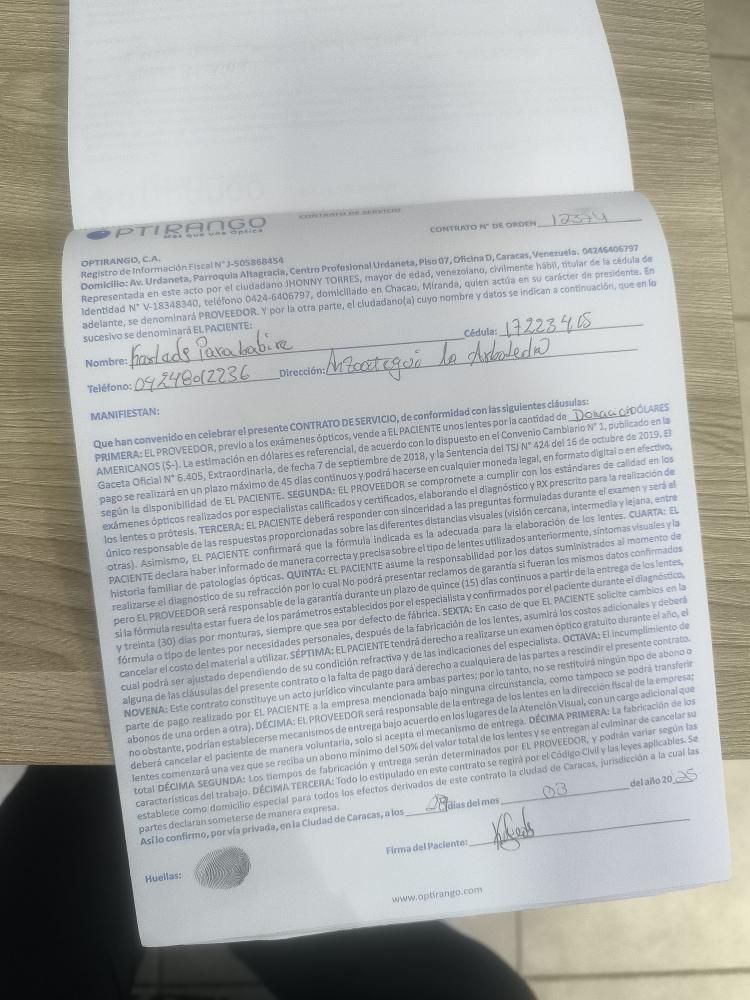 OPTIRANGO
Más que una Óptica
CONTRATO DE SERVICIO
CONTRATO N° DE ORDEN 12374
OPTIRANGO, C.A.
Registro de Información Fiscal N° J-505868454
Domicilio: Av. Urdaneta, Parroquia Altagracia, Centro Profesional Urdaneta, Piso 07, Oficina D, Caracas, Venezuela. 04246406797
Representada en este acto por el ciudadano JHONNY TORRES, mayor de edad, venezolano, civilmente hábil, titular de la cédula de
Identidad N° V-18348340, teléfono 0424-6406797, domiciliado en Chacao, Miranda, quien actúa en su carácter de presidente. En
adelante, se denominará PROVEEDOR. Y por la otra parte, el ciudadano(a) cuyo nombre y datos se indican a continuación, que en lo
sucesivo se denominará EL PACIENTE:
Nombre: Parababire
Cédula: 17223415
Teléfono: 04248012236 Dirección: Anzoategui la Arboleda
MANIFIESTAN:
Que han convenido en celebrar el presente CONTRATO DE SERVICIO, de conformidad con las siguientes cláusulas:
PRIMERA: EL PROVEEDOR, previo a los exámenes ópticos, vende a EL PACIENTE unos lentes por la cantidad de Donación DÓLARES
AMERICANOS ($-). La estimación en dólares es referencial, de acuerdo con lo dispuesto en el Convenio Cambiario N° 1, publicado en la
Gaceta Oficial N° 6.405, Extraordinaria, de fecha 7 de septiembre de 2018, y la Sentencia del TSJ N° 424 del 16 de octubre de 2019. El
pago se realizará en un plazo máximo de 45 días continuos y podrá hacerse en cualquier moneda legal, en formato digital o en efectivo,
según la disponibilidad de EL PACIENTE. SEGUNDA: EL PROVEEDOR se compromete a cumplir con los estándares de calidad en los
exámenes ópticos realizados por especialistas calificados y certificados, elaborando el diagnóstico y RX prescrito para la realización de
los lentes o prótesis. TERCERA: EL PACIENTE deberá responder con sinceridad a las preguntas formuladas durante el examen y será el
único responsable de las respuestas proporcionadas sobre las diferentes distancias visuales (visión cercana, intermedia y lejana, entre
otras). Asimismo, EL PACIENTE confirmará que la fórmula indicada es la adecuada para la elaboración de los lentes. CUARTA: EL
PACIENTE declara haber informado de manera correcta y precisa sobre el tipo de lentes utilizados anteriormente, síntomas visuales y la
historia familiar de patologías ópticas. QUINTA: EL PACIENTE asume la responsabilidad por los datos suministrados al momento de
realizarse el diagnostico de su refracción por lo cual No podrá presentar reclamos de garantía si fueran los mismos datos confirmados
pero EL PROVEEDOR será responsable de la garantía durante un plazo de quince (15) días continuos a partir de la entrega de los lentes,
y treinta (30) días por monturas, siempre que sea por defecto de fábrica. SEXTA: En caso de que EL PACIENTE solicite cambios en la
si la fórmula resulta estar fuera de los parámetros establecidos por el especialista y confirmados por el paciente durante el diagnóstico,
fórmula o tipo de lentes por necesidades personales, después de la fabricación de los lentes, asumirá los costos adicionales y deberá
cancelar el costo del material a utilizar. SÉPTIMA: EL PACIENTE tendrá derecho a realizarse un examen óptico gratuito durante el año, el
cual podrá ser ajustado dependiendo de su condición refractiva y de las indicaciones del especialista. OCTAVA: El incumplimiento de
alguna de las cláusulas del presente contrato o la falta de pago dará derecho a cualquiera de las partes a rescindir el presente contrato.
NOVENA: Este contrato constituye un acto jurídico vinculante para ambas partes; por lo tanto, no se restituirá ningún tipo de abono o
parte de pago realizado por EL PACIENTE a la empresa mencionada bajo ninguna circunstancia, como tampoco se podrá transferir
abonos de una orden a otra). DÉCIMA: EL PROVEEDOR será responsable de la entrega de los lentes en la dirección fiscal de la empresa;
no obstante, podrían establecerse mecanismos de entrega bajo acuerdo en los lugares de la Atención Visual, con un cargo adicional que
deberá cancelar el paciente de manera voluntaria, solo si acepta el mecanismo de entrega. DÉCIMA PRIMERA: La fabricación de los
lentes comenzará una vez que se reciba un abono mínimo del 50% del valor total de los lentes y se entregan al culminar de cancelar su
total DÉCIMA SEGUNDA: Los tiempos de fabricación y entrega serán determinados por EL PROVEEDOR, y podrán variar según las
características del trabajo. DÉCIMA TERCERA: Todo lo estipulado en este contrato se regirá por el Código Civil y las leyes aplicables. Se
establece como domicilio especial para todos los efectos derivados de este contrato la ciudad de Caracas, jurisdicción a la cual las
partes declaran someterse de manera expresa.
Así lo confirmo, por vía privada, en la Ciudad de Caracas, a los días del mes 03 del año 2025
Firma del Paciente:
Huellas:
www.optirango.com